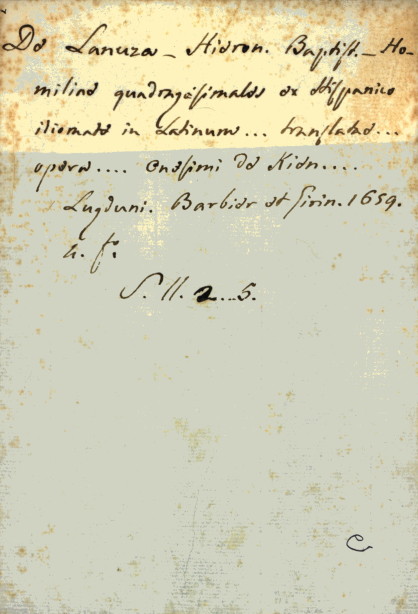 De Lanuza - Hieron. Baptist. - Ho-
miliae quadragesimales ex Hispanico
idiomate in Latinum... translatae...
opera.... Onesimi de Kien....
Lugduni. Barbier et Girin. 1659.
in fo.
S. II. 2...5.
C